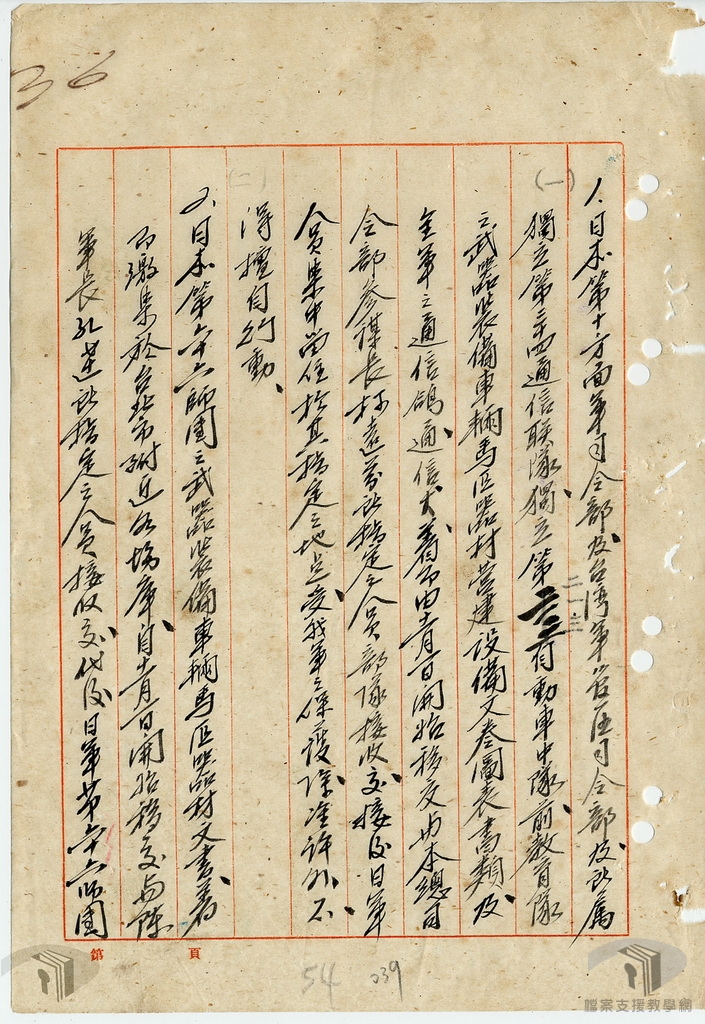 36
(一)
1.日本第十方面軍司令部及台湾軍管區司令部及所属
獨立第三四通信联隊、獨立第
二一二三
自動車中隊、前教育隊
之武器裝備車輛馬匹器材营建設備文卷圖表書類及
全軍之通信鴿通信犬着即由十一月一日開始移交与本總司
令部参謀長柯遠芬所指定之人員部隊接收、交接後日軍
人員集中当住於其指定之地点受我軍之保護、除准許外、不
得擅自行動、
(二)
2.日本第六十六師團之武器裝備車輛馬匹器材文書着
即繳集於台北市附近各場庫、自十一月一日開始移交与陳
軍長孔達所指定之人員接收、交代後日軍第六十六師團
第 頁
54 039
檔案支援教學網